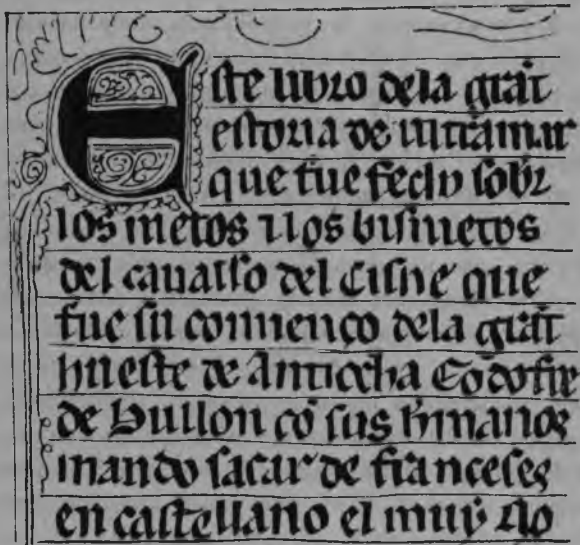 Este libro dela grãt
estoria de ultramar
que fue fecho sobre
los nietos ⁊ los bisnietos
del cauallo del cisne que
fue su comienço dela grãt
hueste de antiocha Godofre
de bullon cõ sus hermanos
mando sacar de franceses
en castellano el muy